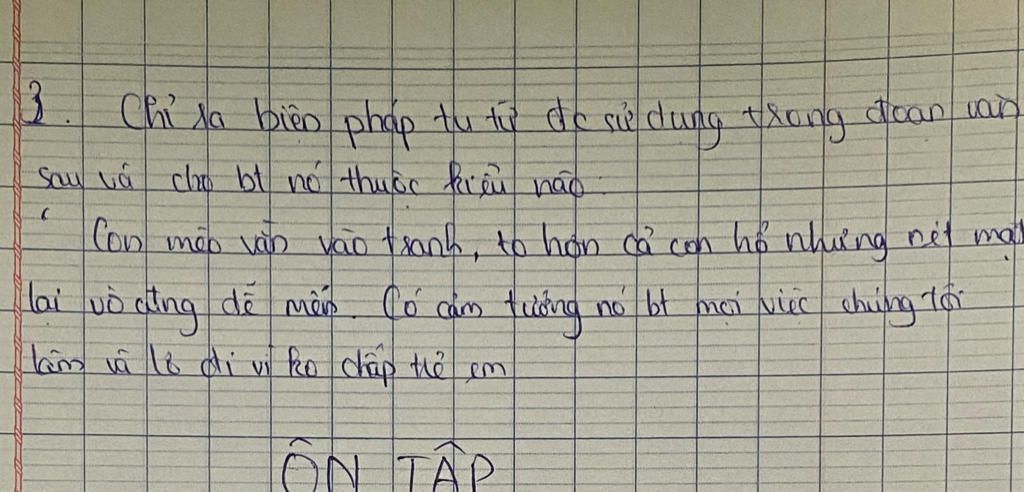 3. Chỉ ra biện pháp tu từ đc sử dụng trong đoạn văn
sau và cho bt nó thuộc kiểu nào.
" Con mèo vằn vào tranh, to hơn cả con hổ nhưng nét mặt
lại vô cùng dễ mến. Có cảm tưởng nó bt mọi việc chúng tôi
làm và lơ đi vì ko chấp trẻ em
ÔN TẬP